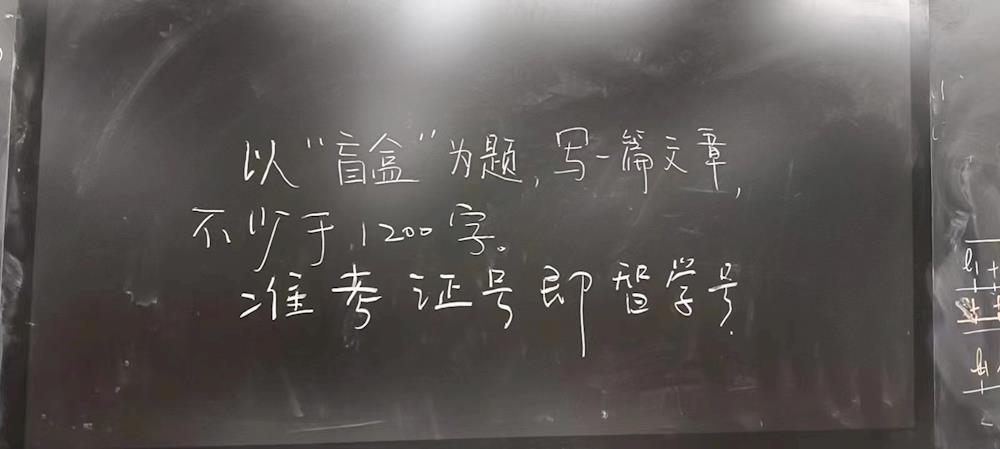 以“盲盒”为题,写一篇文章,
不少于1200字。
准考证号即智学号